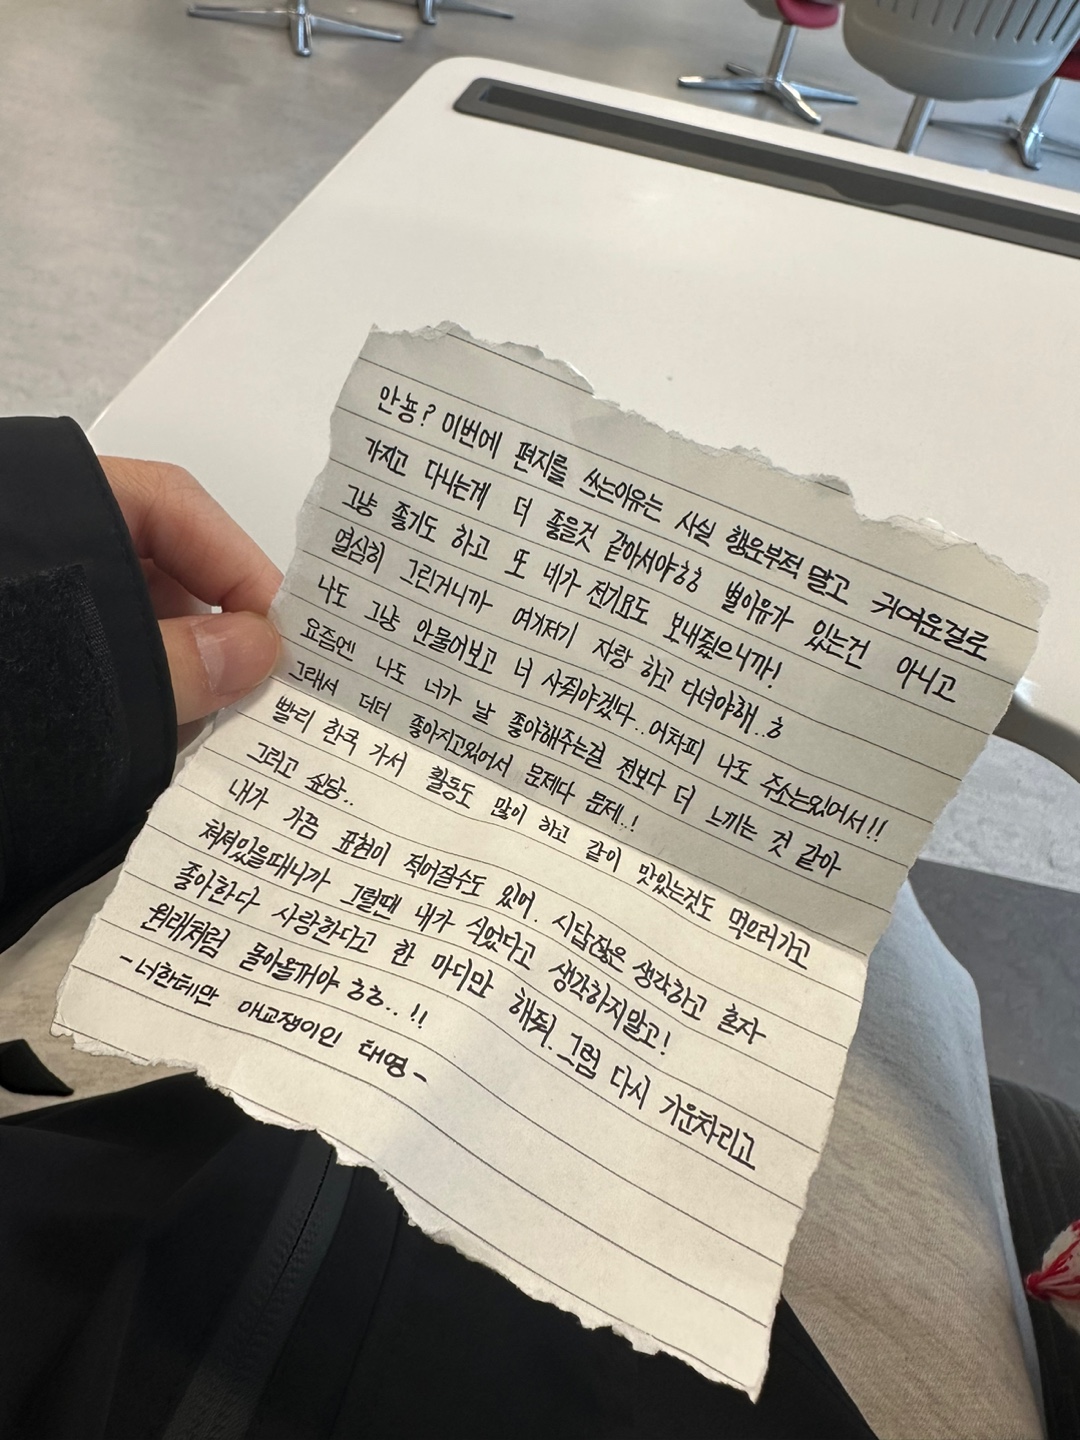 안뇽? 이번에 편지를 쓰는이유는 사실 행운부적 말고 귀여운걸로
가지고 다니는게 더 좋을것 같아서야ㅎㅎ 별이유가 있는건 아니고
그냥 좋기도 하고 또 네가 전기요도 보내줬으니까!
열심히 그린거니까 여기저기 자랑 하고 다녀야해..ㅎ
나도 그냥 안물어보고 너 사줘야겠다..어차피 나도 주소는있어서!!
요즘엔 나도 너가 날 좋아해주는걸 전보다 더 느끼는 것 같아
그래서 더더 좋아지고있어서 문제다 문제..!
빨리 한국 가서 활동도 많이 하고 같이 맛있는것도 먹으러가고
그러고 싶당..
내가 가끔 표현이 적어질수도 있어. 시답잖은 생각하고 혼자
쳐져있을때니까 그럴땐 내가 식었다고 생각하지말고!
좋아한다 사랑한다고 한 마디만 해줘. 그럼 다시 기운차리고
원래처럼 돌아올거야 ㅎㅎ..!!
-너한테만 애교쟁이인 태영-